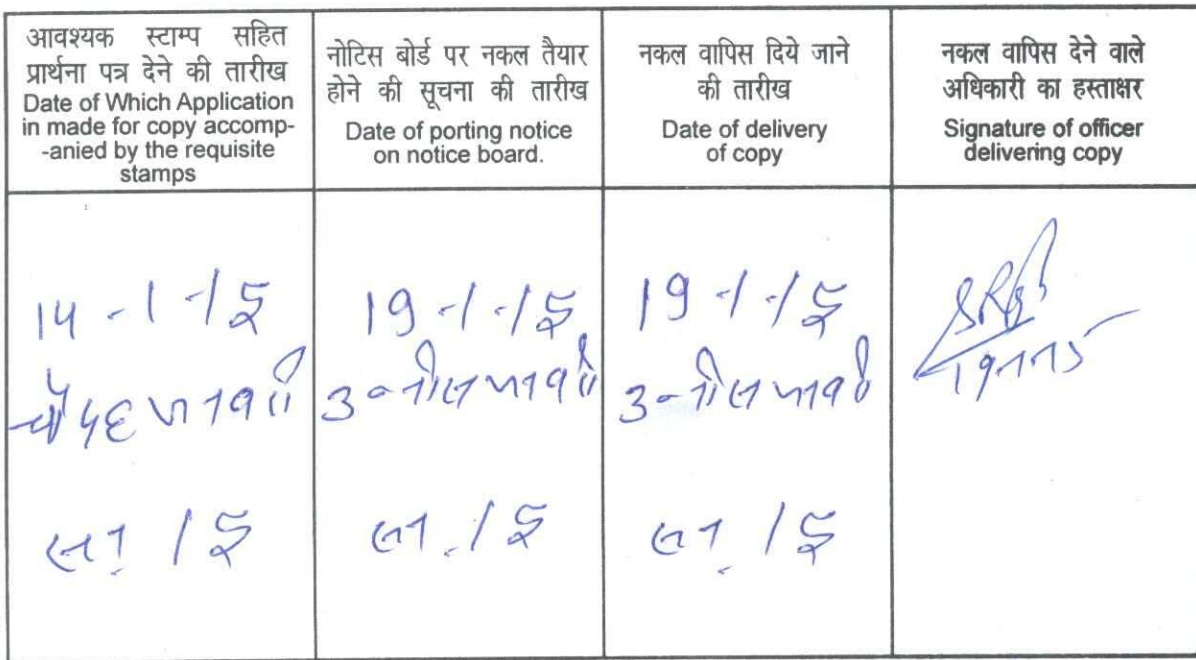 आवश्यक स्टाम्प सहित
प्रार्थना पत्र देने की तारीख
Date of Which Application
in made for copy accomp-
-anied by the requisite
stamps
नोटिस बोर्ड पर नकल तैयार
होने की सूचना की तारीख
Date of porting notice
on notice board.
नकल वापिस दिये जाने
की तारीख
Date of delivery
of copy
नकल वापिस देने वाले
अधिकारी का हस्ताक्षर
Signature of officer
delivering copy
14-1-15
चौदह जनवरी
सन् 15
19-1-15
उन्नीस जनवरी
सन् 15
19-1-15
उन्नीस जनवरी
सन् 15